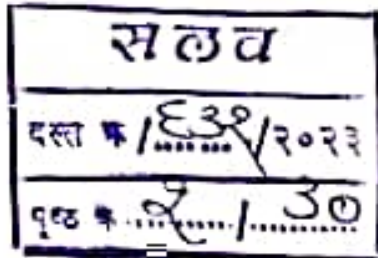 स ल व
दस्त क्र /६३१/२०२३
पृष्ठ क्र २ / ३०